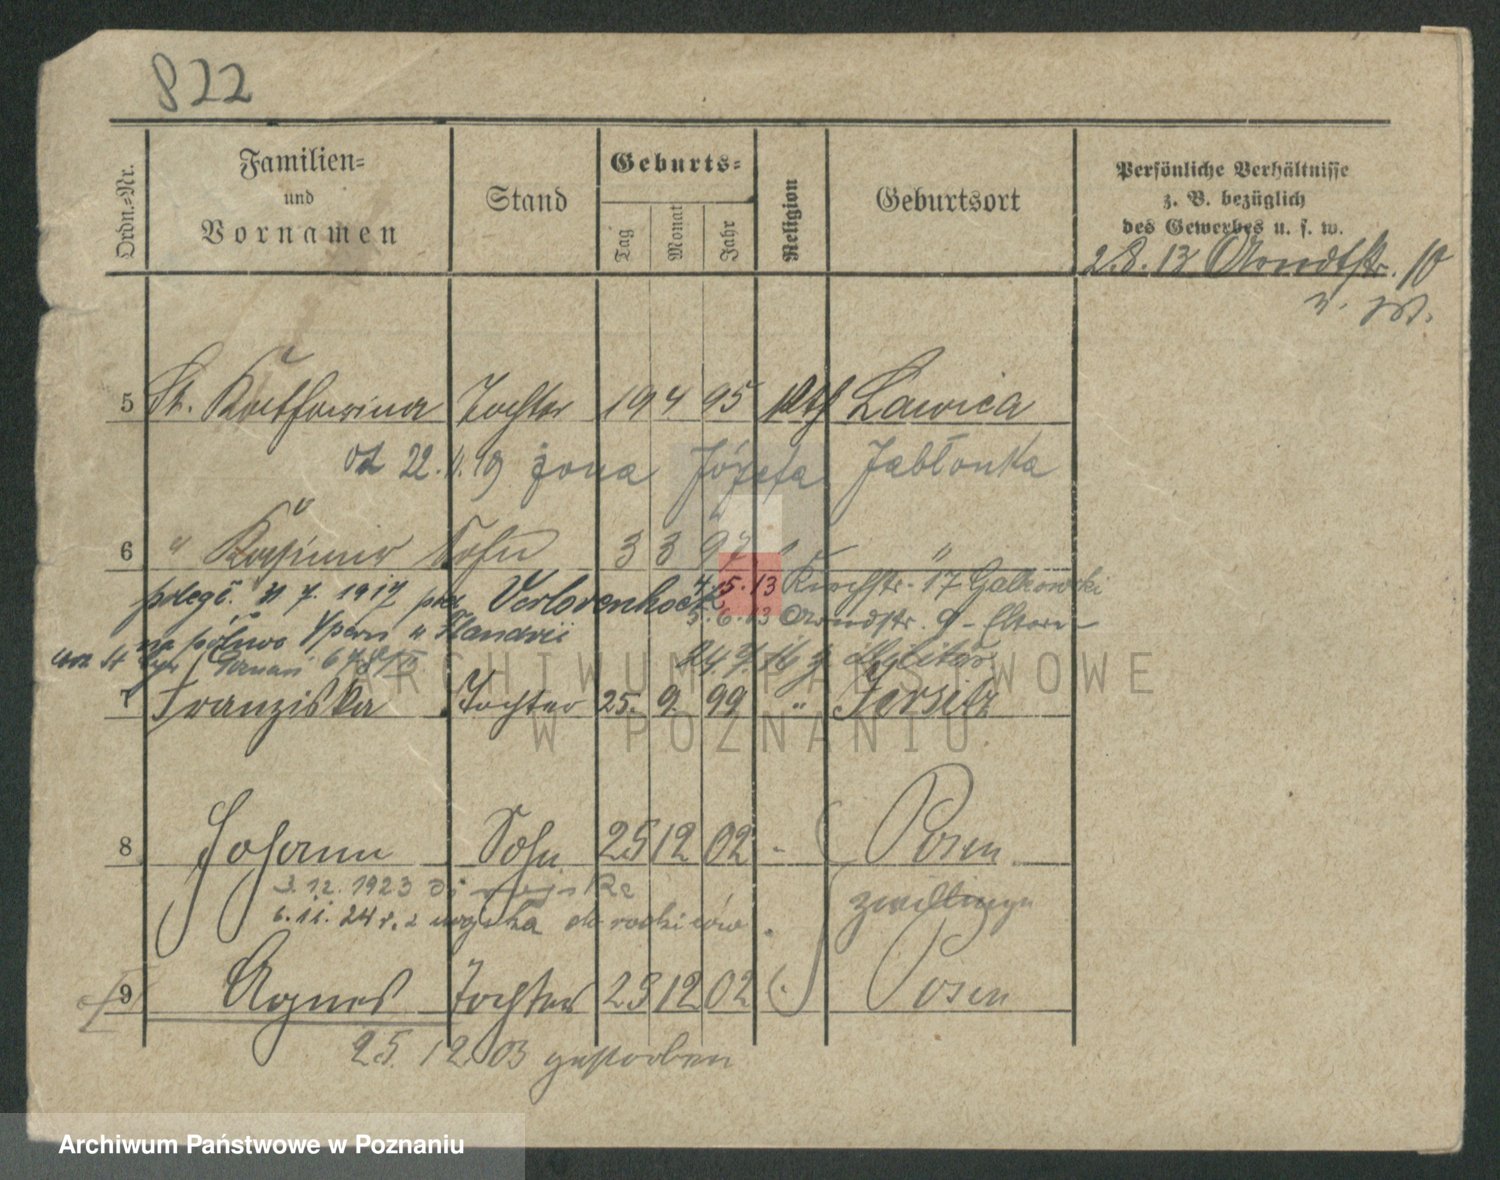 822
Ordn.-Nr.
Familien-
und
Vornamen
Stand
Geburts-
Tag
Monat
Jahr
Religion
Geburtsort
Persönliche Verhältnisse
z. B. bezüglich
des Gewerbes u. s. w.
2.8.13 Arndtstr. 10
5 St. Katharina Tochter 19 4 95 kth Lawica
od 22.11.19 żona Józefa Jabłonka
6 " Kasimir Sohn 3 3 97 " "
poległ. 7. 1917 pod Verlorenhoek 4.5.13 Kirchstr. 17 Galkowski
na półnwo Ypern w Flandrii 5.6.13 Arndtstr. 9 - Eltern
7 Franziska Tochter 25. 9. 99 " Jersitz
8 Johann Sohn 25 12 02 - Posen
3.12.1923 do wojska
6.11.24 r. z wojska do rodziców.
Zwillinge
9 Agnes Tochter 23 12 02 Posen
25.12.03 gestorben
ARCHIWUM PAŃSTWOWE
W POZNANIU
Archiwum Państwowe w Poznaniu